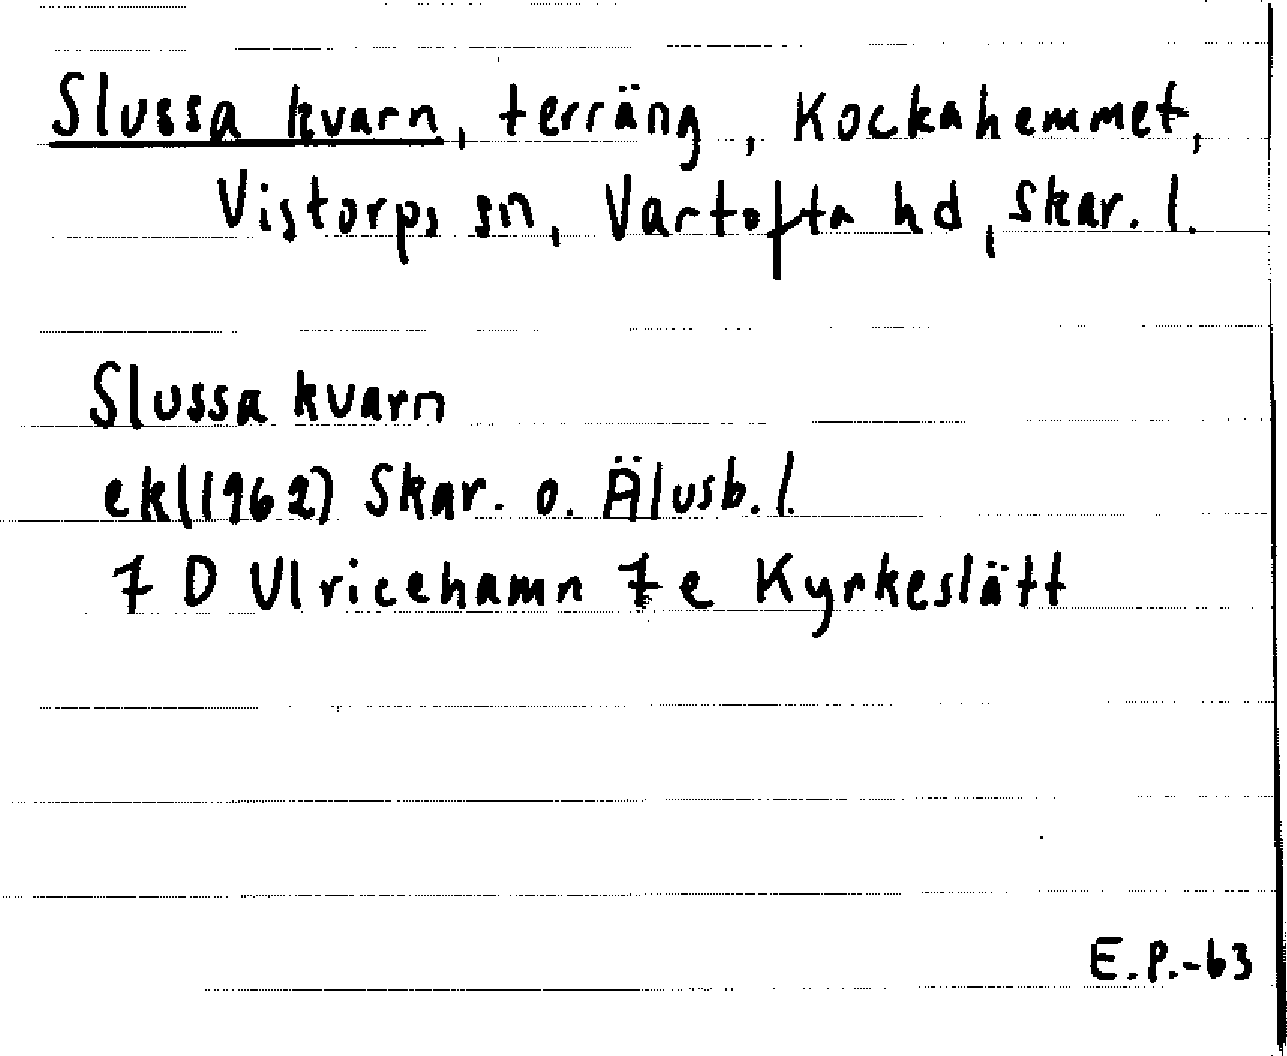 Slussa kvarn, terräng, Kockahemmet,
Vistorps sn, Vartofta hd, Skar. l.
Slussa kvarn
ek(1962) Skar. o. Älvsb. l.
7 D Ulricehamn 7 e Kyrkeslätt
E.P.-63